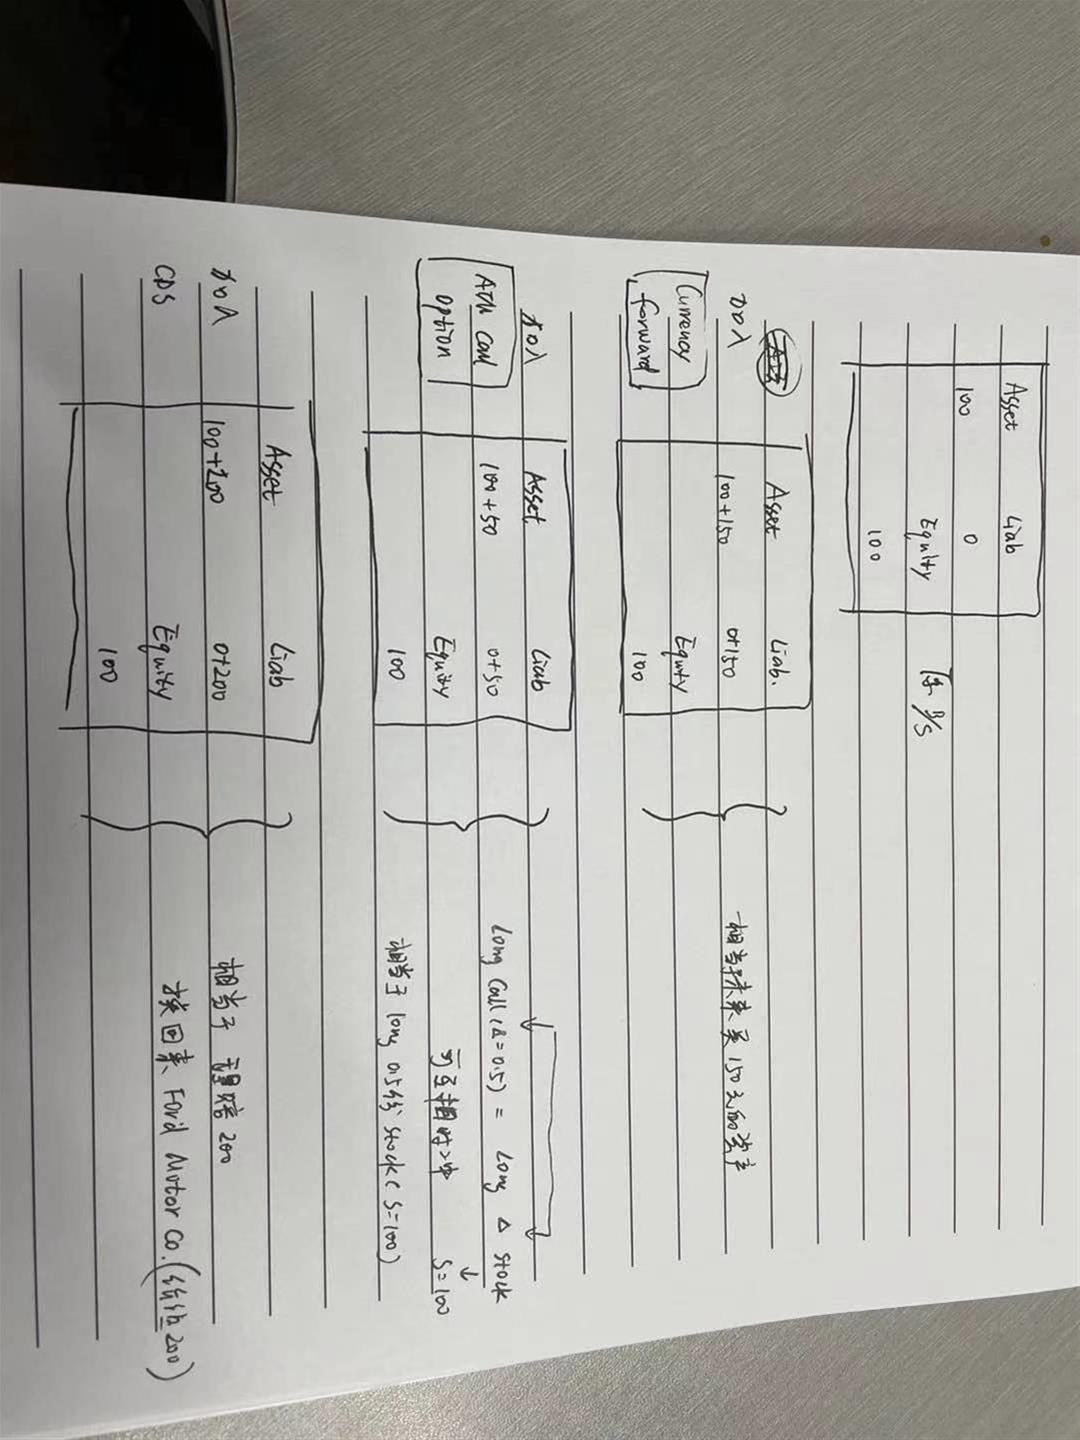 Asset Liab
100 0
Equity
100
原 B/S
加入
Currency
forward
Asset Liab.
100+150 0+150
Equity
100
相当于未来买150元的资产
加入
ATM Call
option
Asset Liab
100+50 0+50
Equity
100
Long Call (Δ=0.5) = Long Δ stock
可互相对冲 S=100
相当于 long 0.5份 stock (S=100)
加入
CDS
Asset Liab
100+200 0+200
Equity
100
相当于 理赔200
换回来 Ford Motor Co.(价值200)